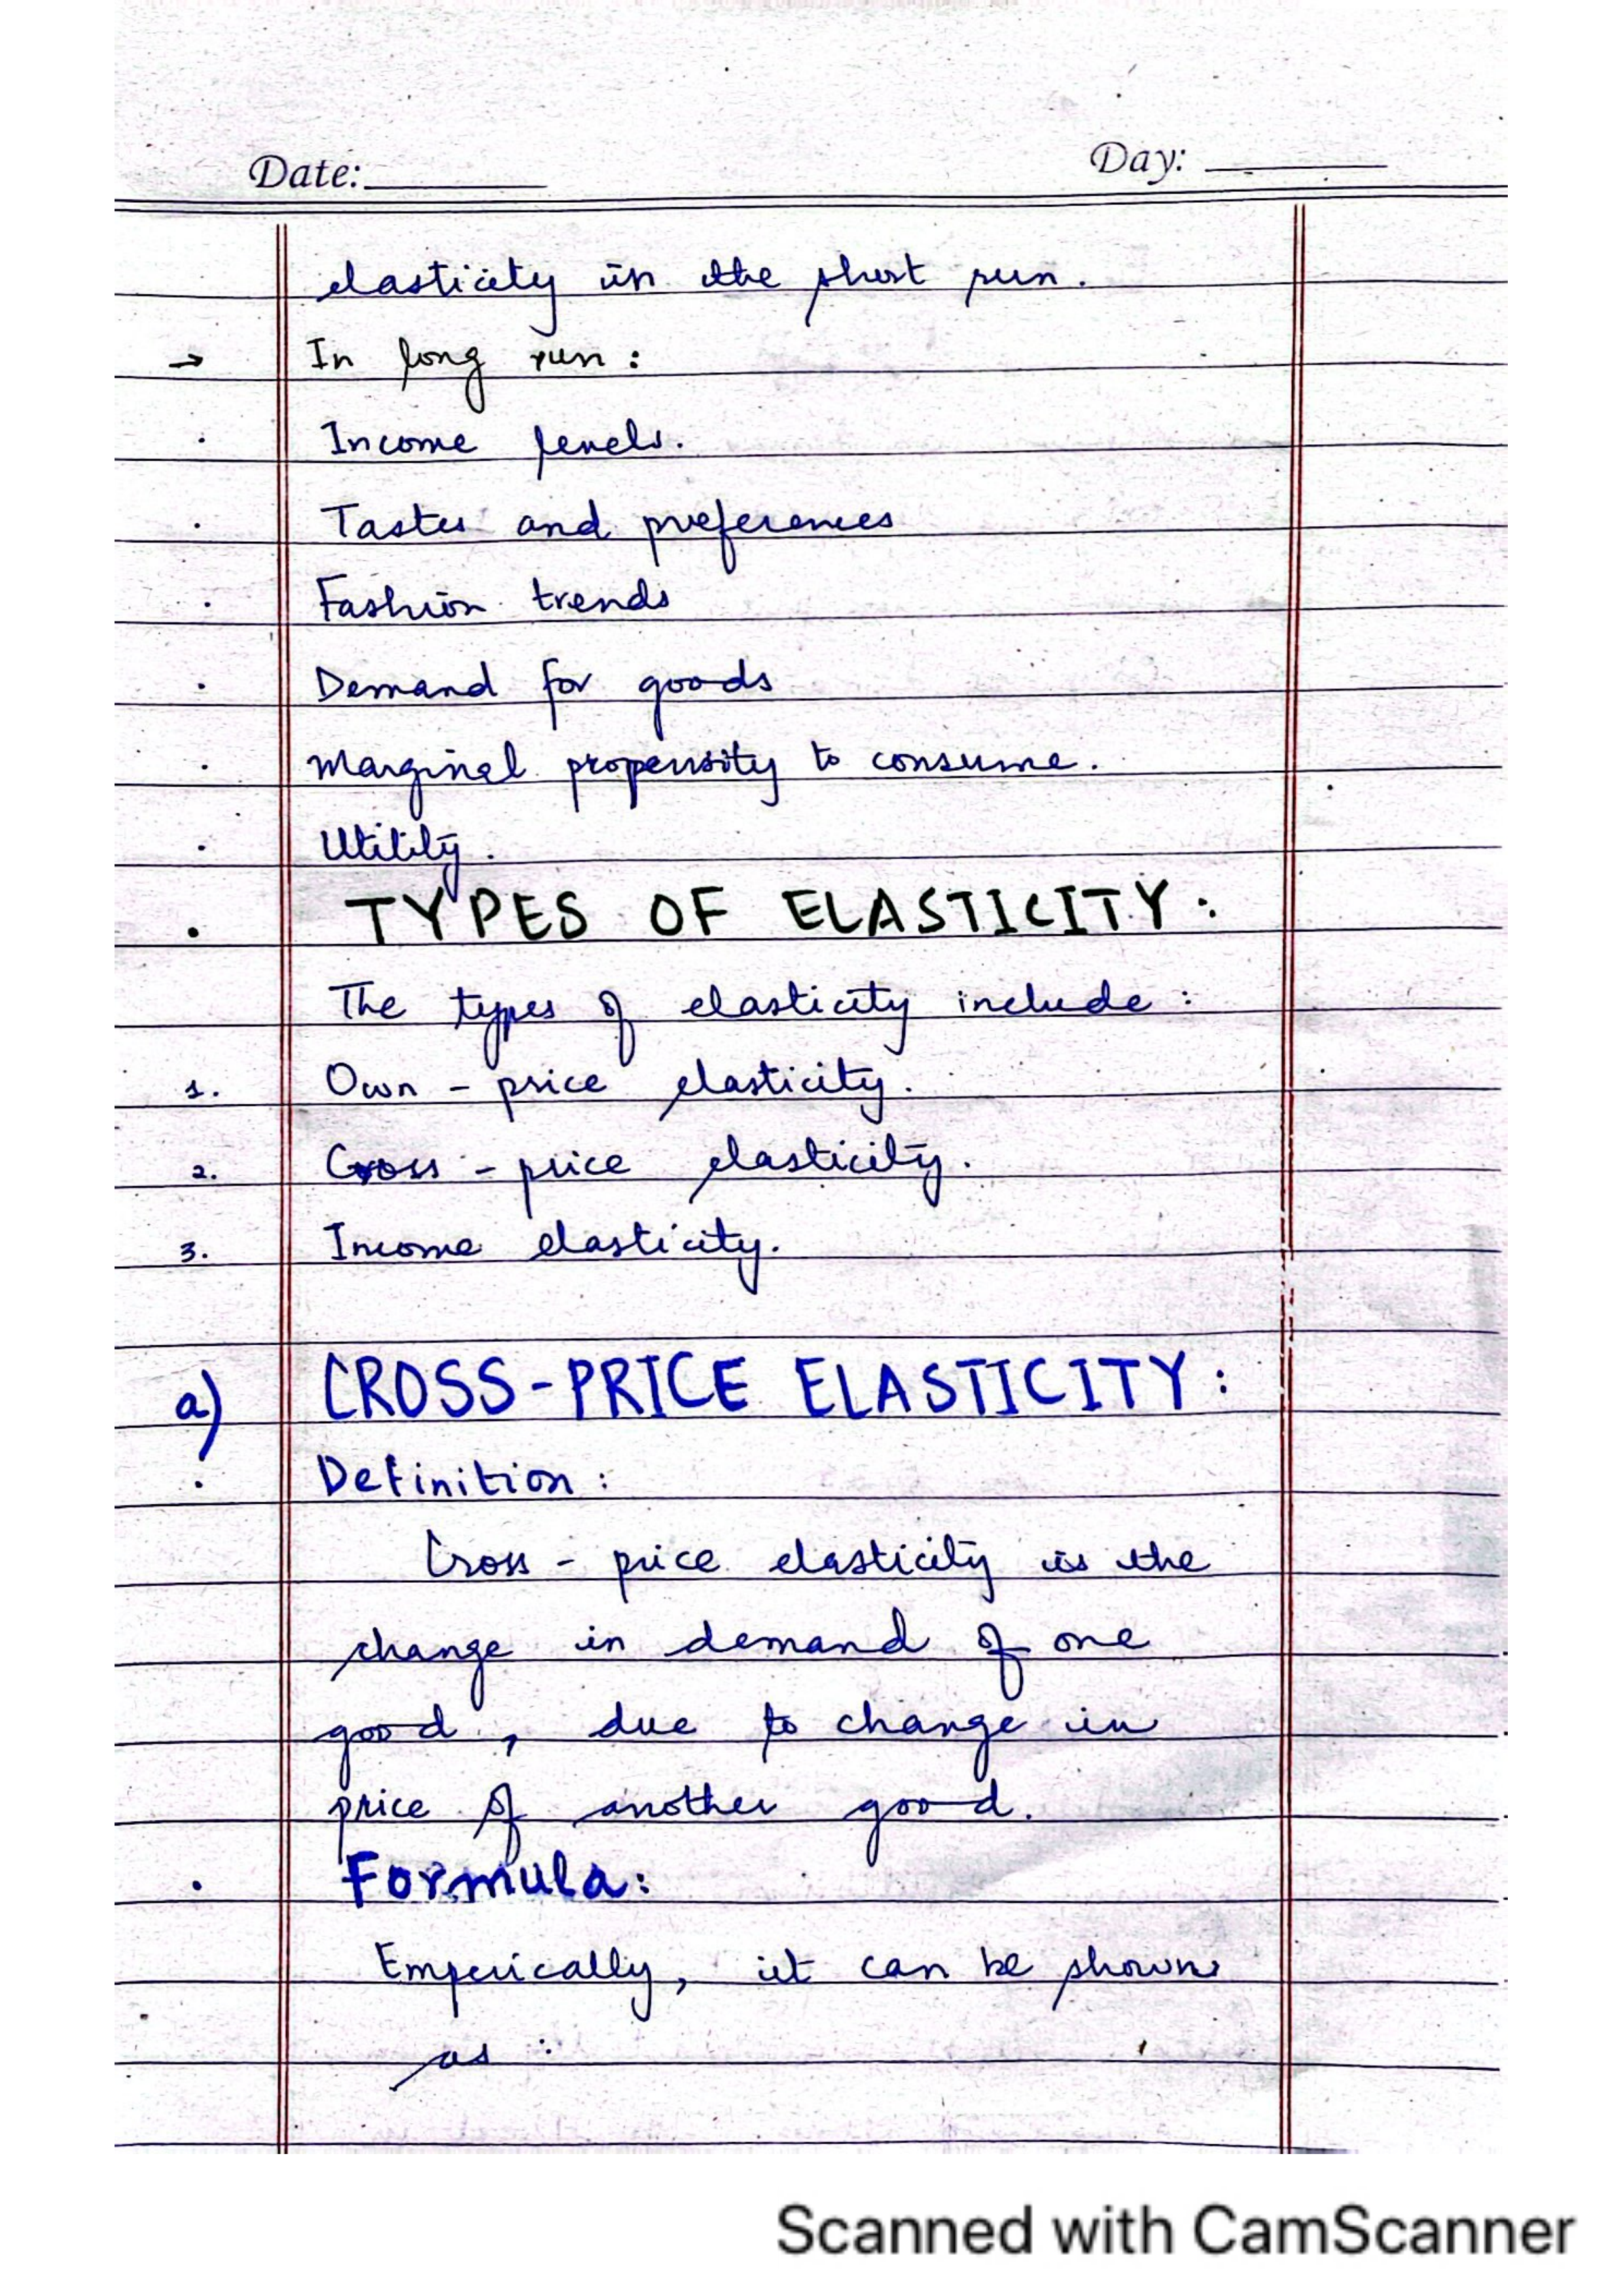 Date: Day:
elasticity in the short run.
→ In long run :
· Income levels.
· Tastes and preferences
· Fashion trends
· Demand for goods
· Marginal propensity to consume.
· Utility.
· TYPES OF ELASTICITY :
The types of elasticity include :
1. Own - price elasticity.
2. Cross - price elasticity.
3. Income elasticity.
a) CROSS-PRICE ELASTICITY :
· Definition :
Cross - price elasticity is the
change in demand of one
good , due to change in
price of another good.
· Formula :
Emperically, it can be shown
as :
Scanned with CamScanner